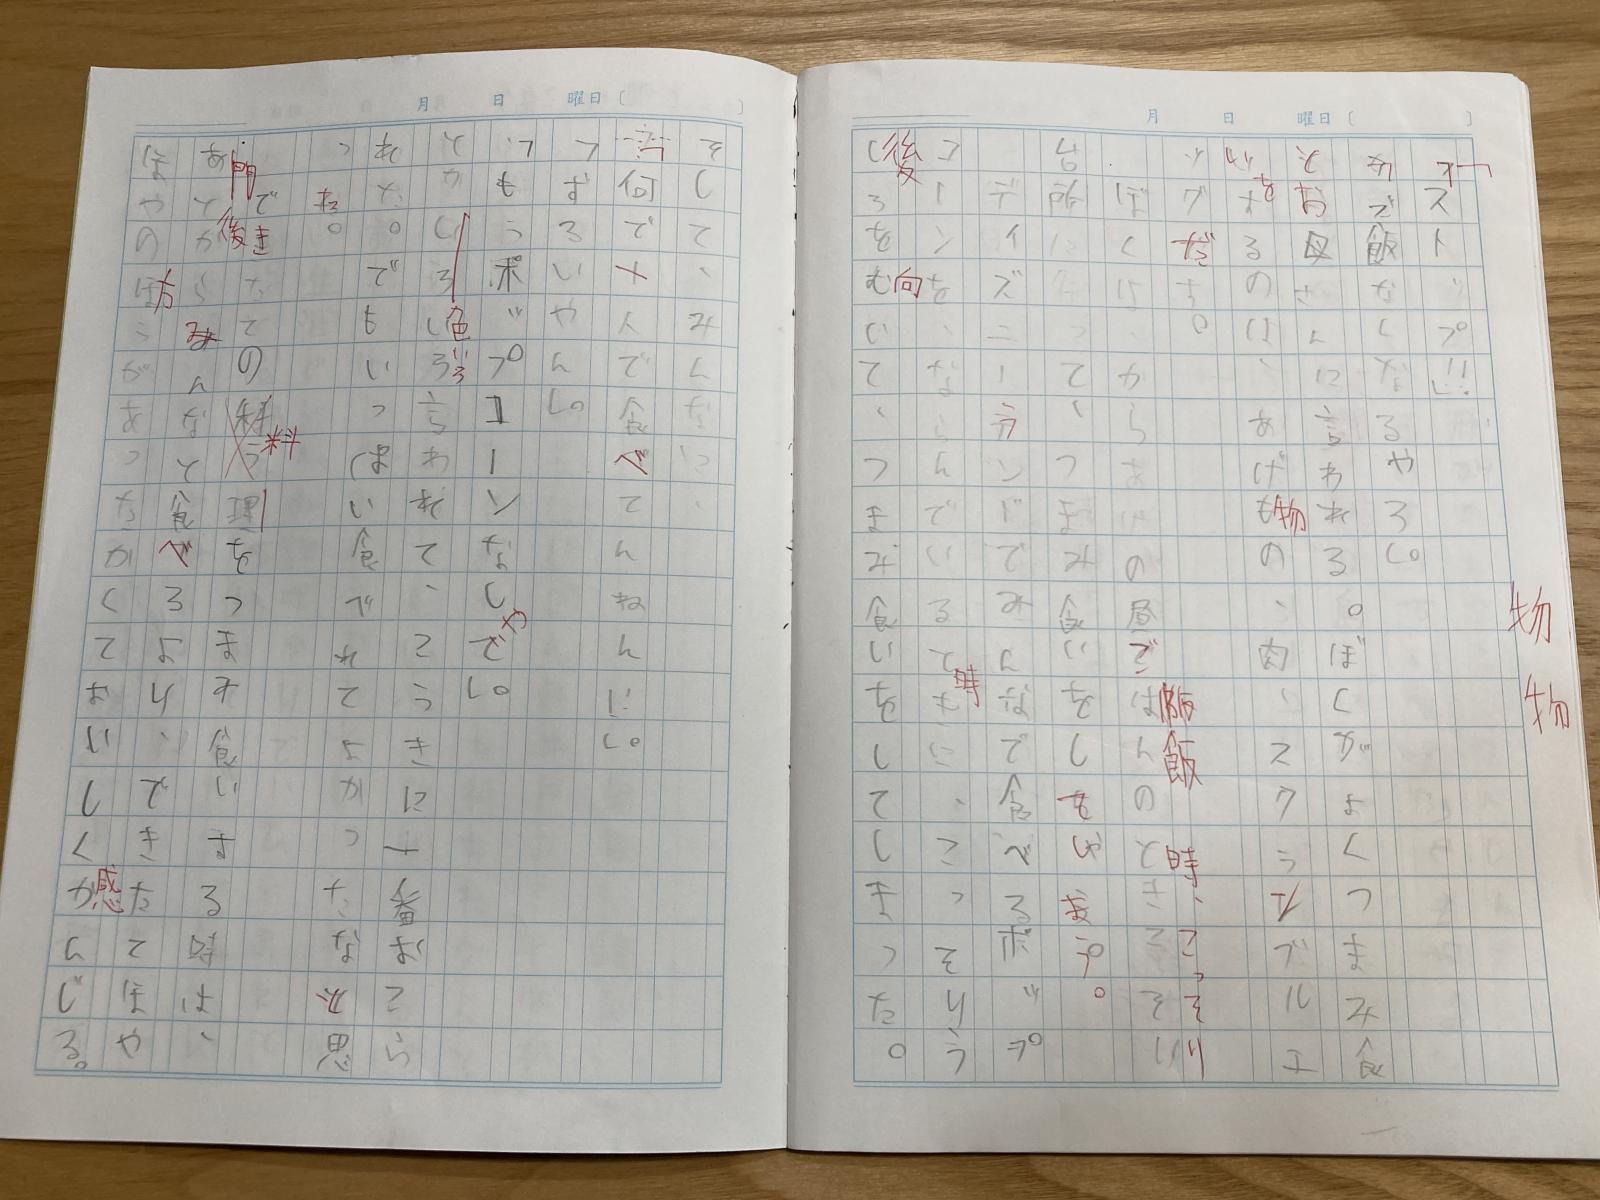 「ストップ!!
飯なくなるやろ」
とお母さんに言われる。ぼくがよくつまみ食
するのは、あげもの、肉、スクランブルエ
グだよ。
ぼくはからあげの昼ごはんのとき、こっそり
台所に行って、つまみ食いをし
ディズニーランドでみんなで食べるポップ
コーンをならんでいるときに、こっそりう
しろをむいて、つまみ食いをしてしまった。
そして、みんなに、
「何で 食べてんねん!!」
「もうポップコーンなしやで。」
言われて、 一番
れた。でもいっぱい食べれてよかったなと思
った。
できたての料理をつまみ食いする時は、
あとからみんなと食べるより、できたてほや
ほやのほうがあったかくておいしくかんじる。
門
後
方
料
色
感
後
向
時
物
飯
時
物
物